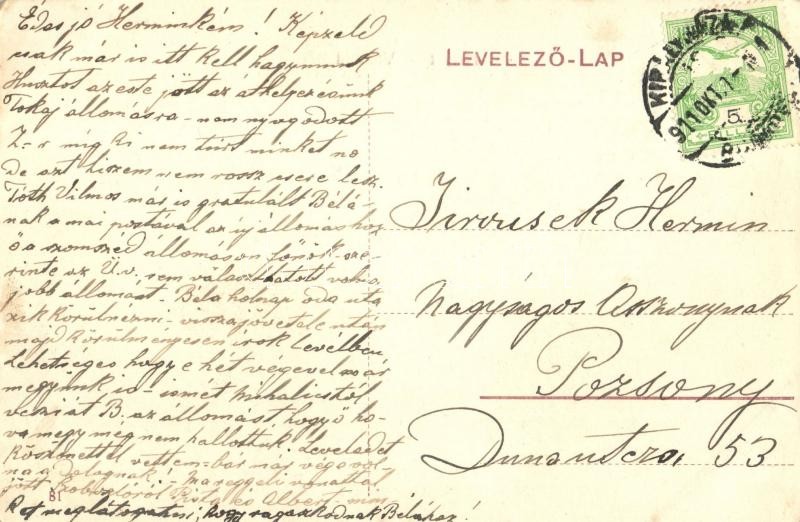 Édes jó Herminkém! Képzeld
csak már is itt kell hagynunk
Husztot az este jött az áthelyezésünk
Tokaj állomásra - nem nyugodott
Z-r míg ki nem túrt minket no
de azt hiszem nem rossz csere lesz.
Tóth Vilmos már is gratulált Bélá-
nak a mai postával az új állomáshoz
ő a szomszéd állomáson főnök - sze-
rinte az Ü.v. sem választhatott volna
jobb állomást. Béla holnap oda uta-
zik körülnézni - visszajövetele után
majd körülményesen írok levélben
Lehetséges hogy e hét végével már
megyünk is - ismét Mihalicstól
veszi át B. az állomást hogy ő ho-
va megy még nem hallottuk. Leveledet
köszönettel vettem - bár már vége vol-
na a dolognak - ma reggeli vonattal
jött Pista és Albert min-
ket meglátogatni, hogy ragaszkodnak Bélához!
81
LEVELEZŐ-LAP
KIRÁLYHÁZA
911 OKT. 1
5
FILLÉR
Jirousek Hermin
Nagyságos Asszonynak
Pozsony
Dunautcza 53